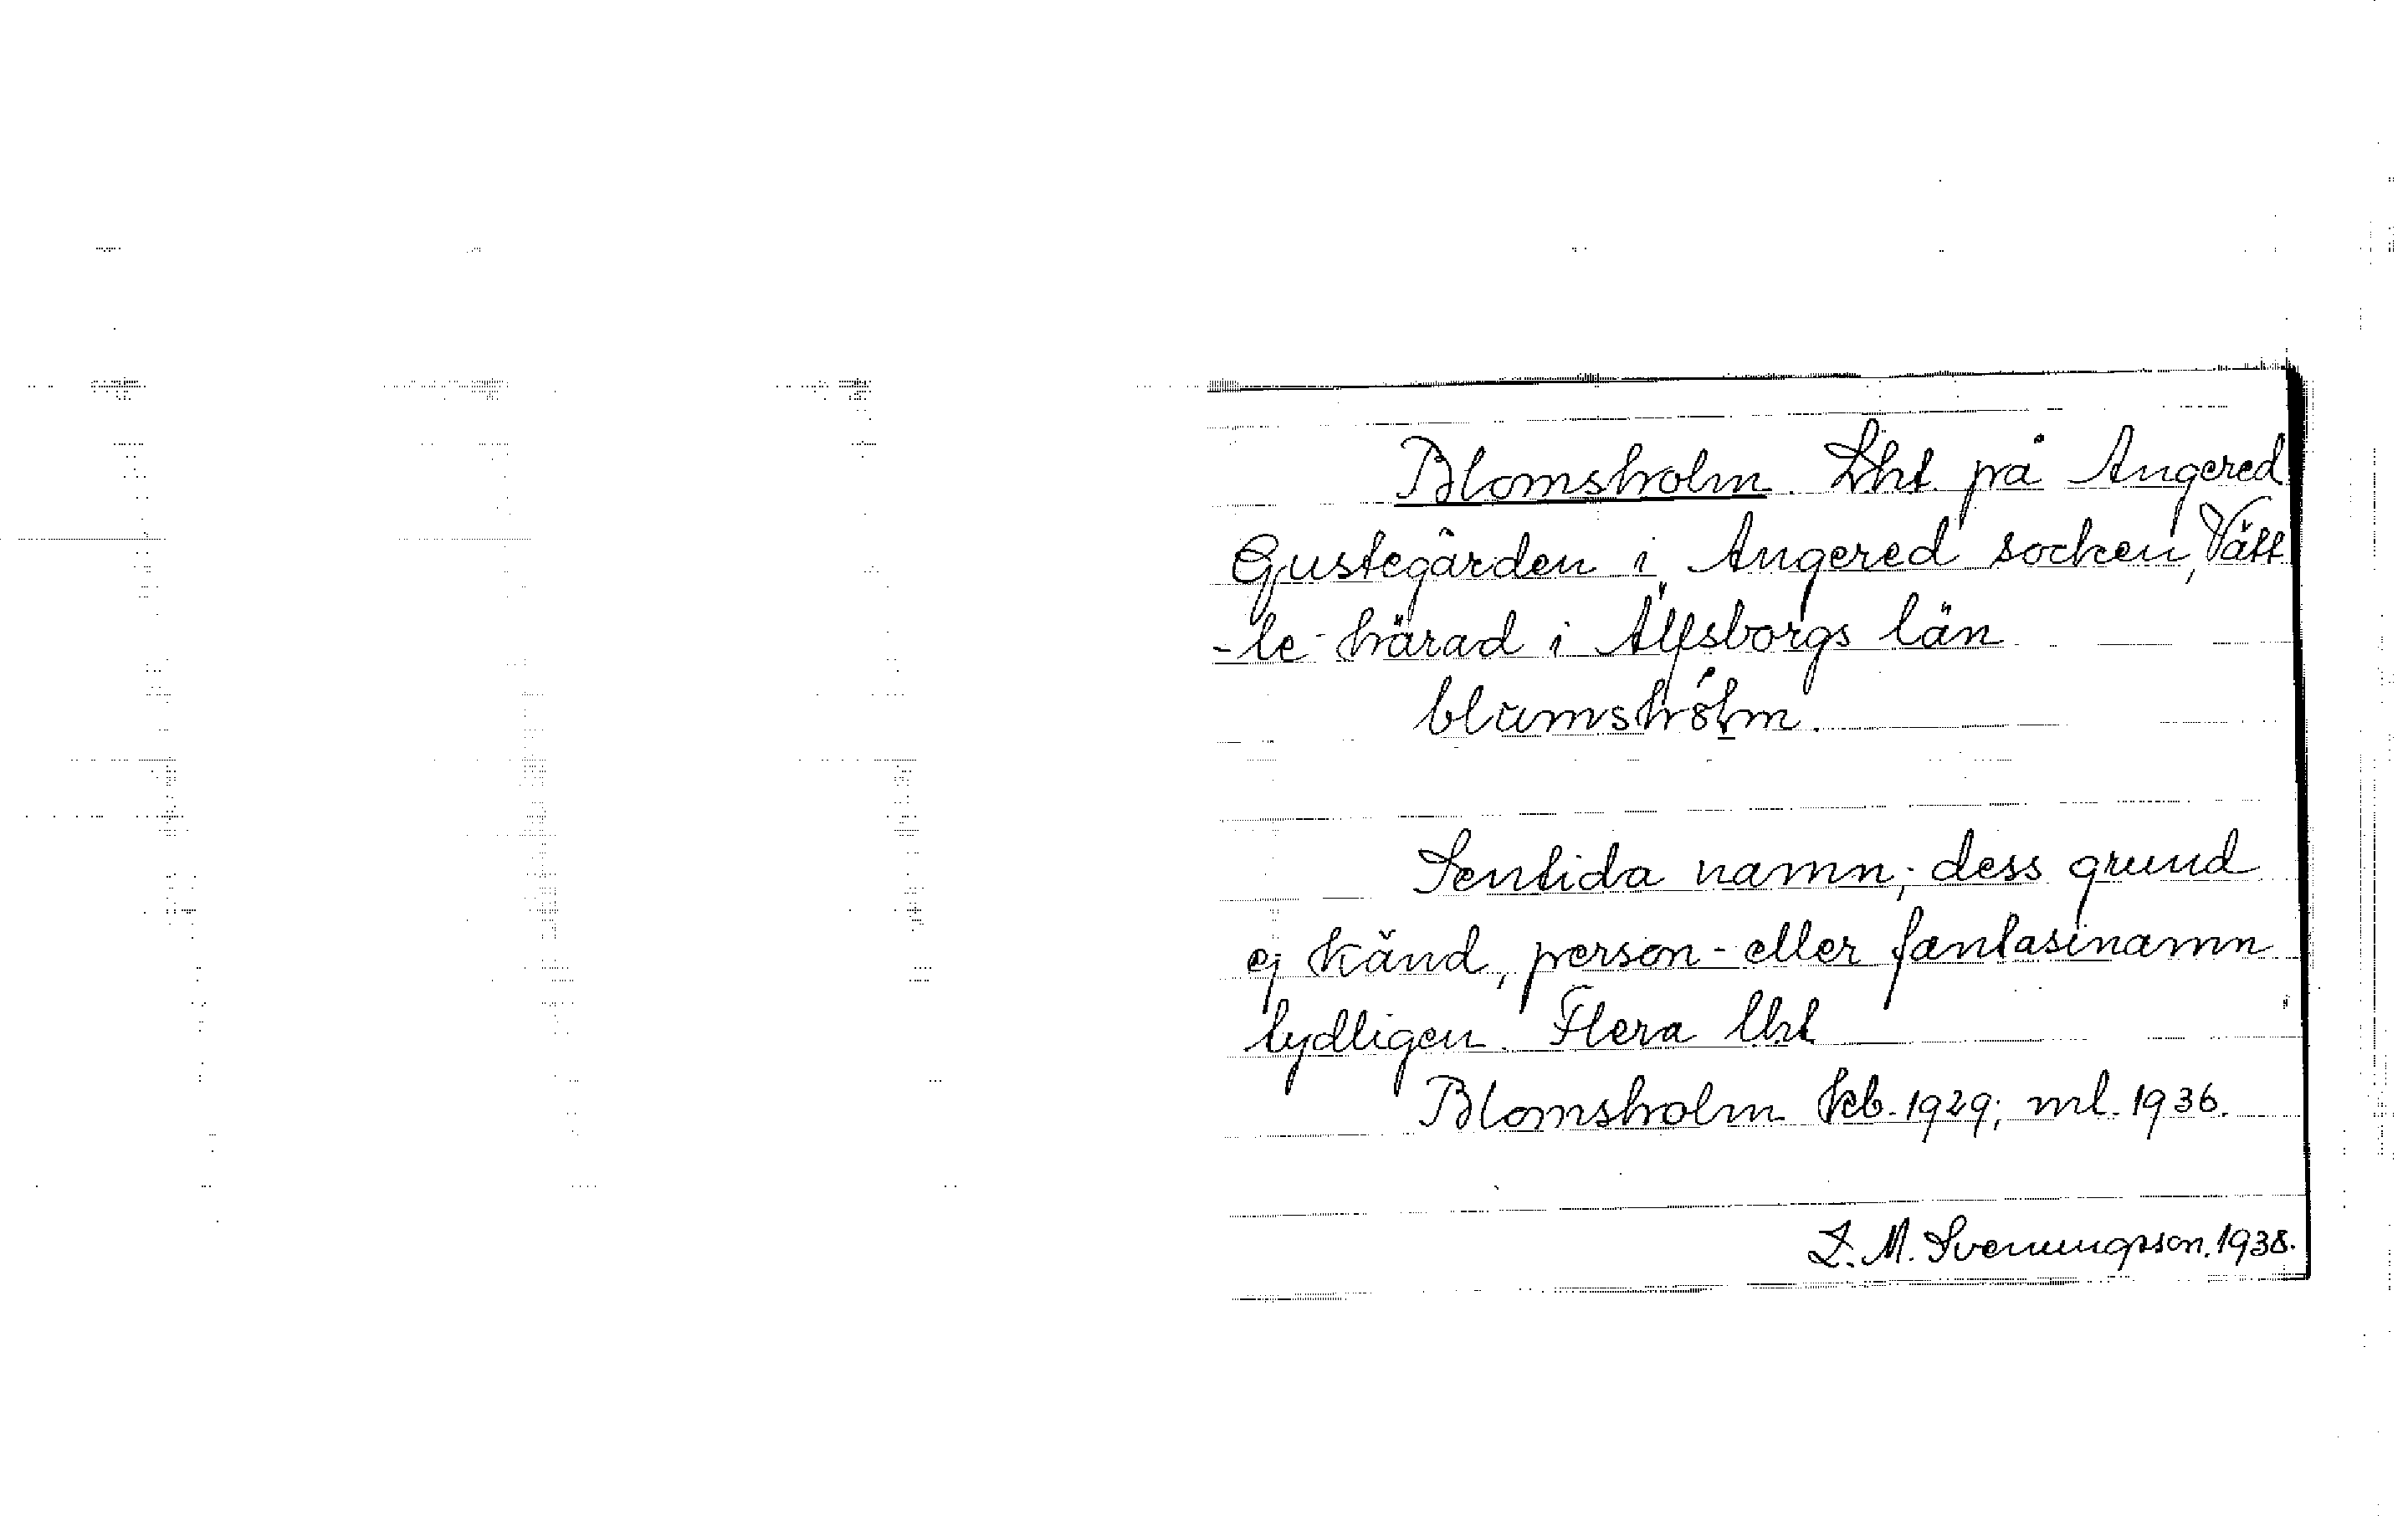 Blomsholm. Lht. på Angered
Gustegården i Angered socken, Vätt
-le-härad i Älfsborgs län
blumshòlm.
Sentida namn; dess grund
ej känd, person- eller fantasinamn
tydligen. Flera lht
Blomsholm kb. 1929; ml. 1936.
L. M. Svenungsson. 1938.